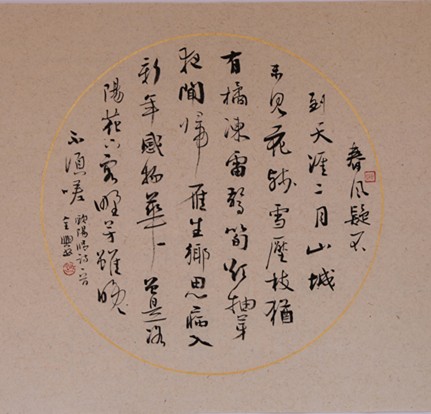 春风疑不
到天涯二月山城
未见花残雪壓枝猶
有橘凍雷驚筍欲抽芽
夜聞歸雁生鄉思病入
新年感物華曾是洛
陽花下客野芳雖晚
不須嗟
歐陽脩詩